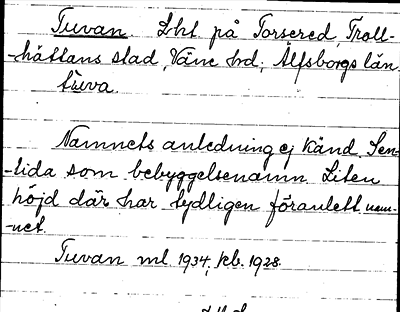 Tuvan. Lht. på Torsered, Troll-
-hättans stad, Väne hd, Älfsborgs län.
tuva.
Namnets anledning ej känd. Sen-
-tida som bebyggelsenamn. Liten
höjd där har tydligen föranlett nam-
-net.
Tuvan ml 1934, kb. 1928.